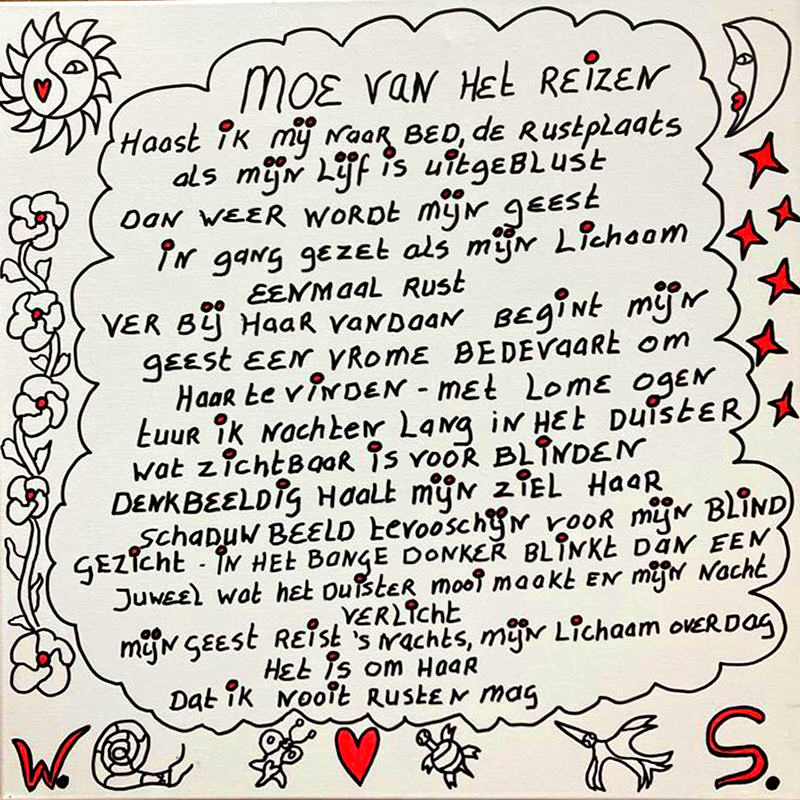 MOE VAN HET REIZEN
Haast ik mij naar BED, de Rustplaats
als mijn Lijf is uitgeBLUST
Dan WEER WORDT mijn geest
in gang gezet als mijn Lichaam
EENMAAL RUST
VER BIJ HAAR VANDAAN BEGINT MIJN
GEEST EEN VROME BEDEVAART OM
HAAR te VINDEN - MET LOME OGEN
tuur ik Nachten Lang in HET Duister
Wat zichtbaar is VOOR BLINDEN
DENKBEELDIG HAALT mijn ZIEL HAAR
SCHADUWBEELD tevooschijn voor mijn BLIND
GEZICHT - IN HET BANGE DONKER BLINKT DAN EEN
JUWEEL Wat het Duister mooi maakt EN mijn Nacht
VERLICHT
mijn GEEST REIST 's Nachts, mijn Lichaam OVERDAG
HET is om HAAR
Dat ik Nooit RUSTEN mag
W. S.